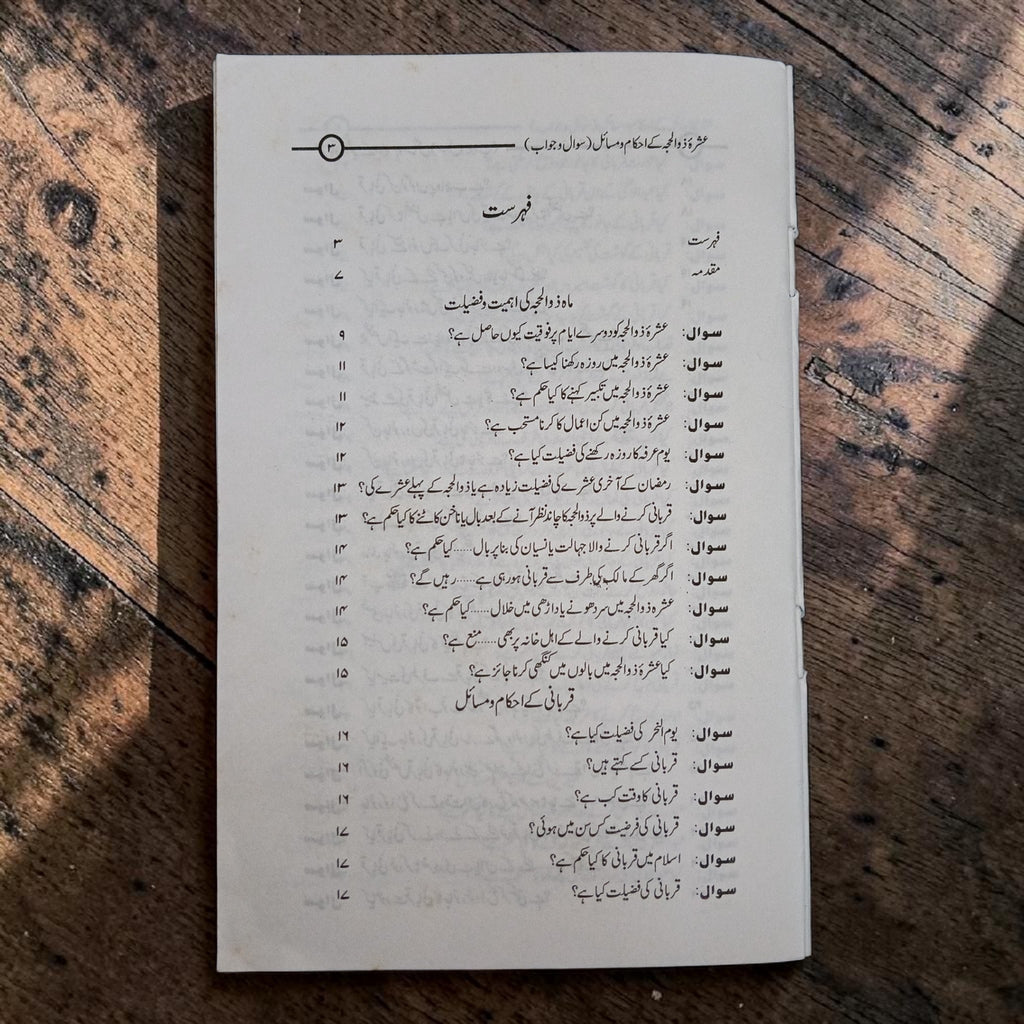 عشرۂ ذوالحجہ کے احکام و مسائل (سوال و جواب) ۳
فہرست
فہرست ۳
مقدمہ ۷
ماہ ذوالحجہ کی اہمیت و فضیلت
سوال: عشرۂ ذوالحجہ کو دوسرے ایام پر فوقیت کیوں حاصل ہے؟ ۹
سوال: عشرۂ ذوالحجہ میں روزہ رکھنا کیسا ہے؟ ۱۱
سوال: عشرۂ ذوالحجہ میں تکبیر کہنے کا کیا حکم ہے؟ ۱۱
سوال: عشرۂ ذوالحجہ میں کن اعمال کا کرنا مستحب ہے؟ ۱۲
سوال: یوم عرفہ کا روزہ رکھنے کی فضیلت کیا ہے؟ ۱۲
سوال: رمضان کے آخری عشرے کی فضیلت زیادہ ہے یا ذوالحجہ کے پہلے عشرے کی؟ ۱۳
سوال: قربانی کرنے والے پر ذوالحجہ کا چاند نظر آنے کے بعد بال یا ناخن کاٹنے کا کیا حکم ہے؟ ۱۳
سوال: اگر قربانی کرنے والا جہالت یا نسیان کی بنا پر بال......کیا حکم ہے؟ ۱۴
سوال: اگر گھر کے مالک کی طرف سے قربانی ہو رہی ہے......رہیں گے؟ ۱۴
سوال: عشرہ ذوالحجہ میں سر دھونے یا داڑھی میں خلال......کیا حکم ہے؟ ۱۴
سوال: کیا قربانی کرنے والے کے اہل خانہ پر بھی......منع ہے؟ ۱۵
سوال: کیا عشرۂ ذوالحجہ میں بالوں میں کنگھی کرنا جائز ہے؟ ۱۵
قربانی کے احکام و مسائل
سوال: یوم النحر کی فضیلت کیا ہے؟ ۱۶
سوال: قربانی کسے کہتے ہیں؟ ۱۶
سوال: قربانی کا وقت کب ہے؟ ۱۶
سوال: قربانی کی فرضیت کس سن میں ہوئی؟ ۱۷
سوال: اسلام میں قربانی کا کیا حکم ہے؟ ۱۷
سوال: قربانی کی فضیلت کیا ہے؟ ۱۷